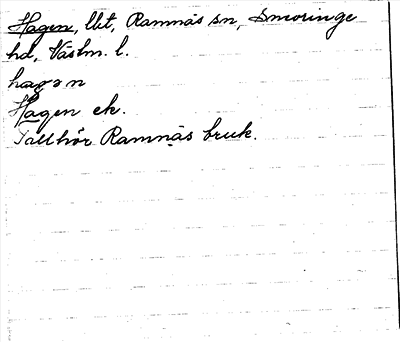 Hagen, lht, Ramnäs sn, Snevringe
hd, Västm. l.
hagən
Hagen ek.
Tallhör Ramnäs bruk.